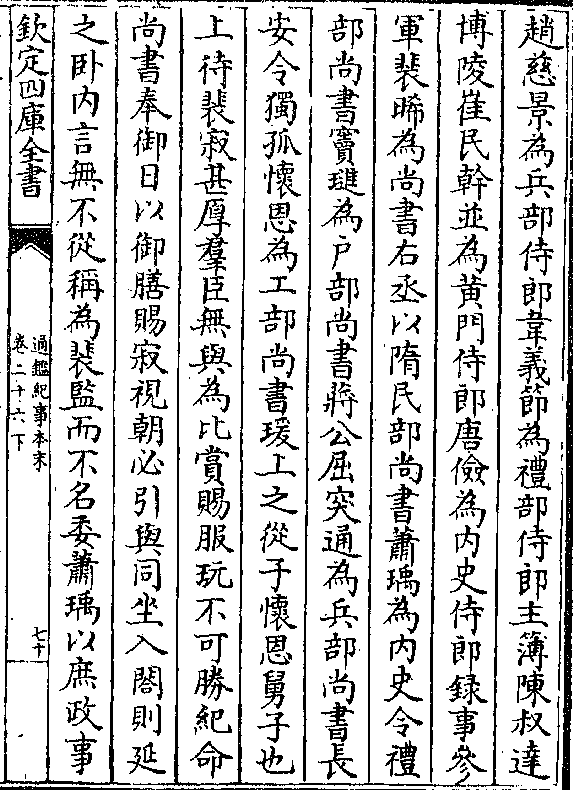 趙慈景為兵部侍郎韋義節為禮部侍郎主簿陳叔達
博陵崔民幹並為黄門侍郎唐儉為内史侍郎録事參
軍裴晞為尚書右丞以隋民部尚書蕭瑀為内史令禮
部尚書竇璡為户部尚書蔣公屈突通為兵部尚書長
安令獨孤懷恩為工部尚書瑗上之從子懷恩舅子也
上待裴寂甚厚羣臣無與為比賞賜服玩不可勝紀命
尚書奉御日以御膳賜寂視朝必引與同坐入閤則延
之卧内言無不從稱為裴監而不名委蕭瑀以庶政事
欽定四庫全書
通鑑紀事本末
卷二十六下
七十